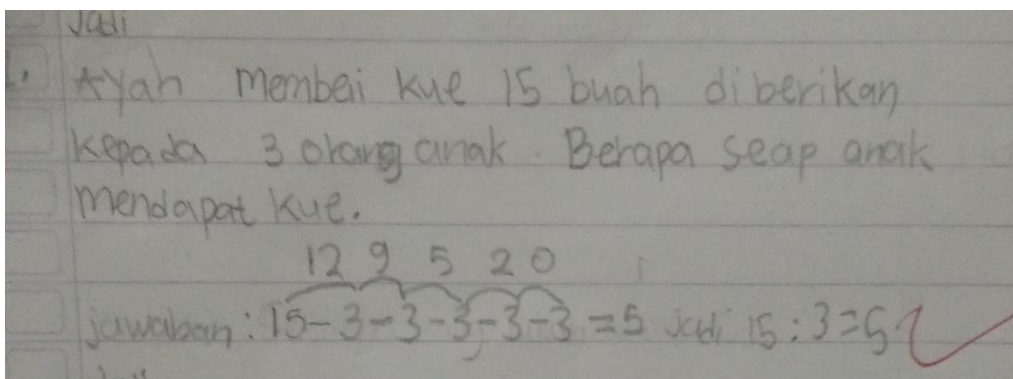 Jadi
Ayah membei kue 15 buah diberikan
kepada 3 orang anak. Berapa seap anak
mendapat kue.
12 9 5 2 0
jawaban : 15-3-3-3-3-3 = 5 Jadi 15 : 3 = 5